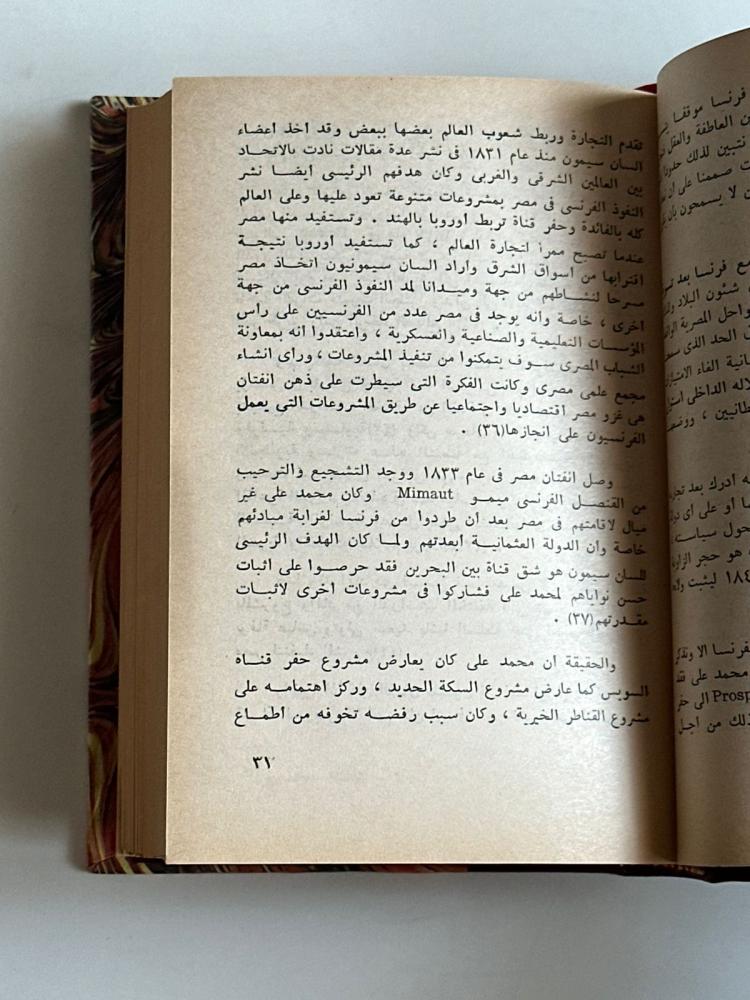 تقدم التجارة وربط شعوب العالم بعضها ببعض وقد اخذ اعضاء
السان سيمون منذ عام ١٨٣١ فى نشر عدة مقالات نادت بالاتحاد
بين العالمين الشرقى والغربى وكان هدفهم الرئيسى ايضا نشر
النفوذ الفرنسى فى مصر بمشروعات متنوعة تعود عليها وعلى العالم
كله بالفائدة وحفر قناة تربط اوروبا بالهند . وتستفيد منها مصر
عندما تصبح ممرا لتجارة العالم ، كما تستفيد اوروبا نتيجة
اقترابها من اسواق الشرق واراد السان سيمونيون اتخاذ مصر
مسرحا لنشاطهم من جهة وميدانا لمد النفوذ الفرنسى من جهة
اخرى ، خاصة وانه يوجد فى مصر عدد من الفرنسيين على راس
المؤسسات التعليمية والصناعية والعسكرية ، واعتقدوا انه بمعاونة
الشباب المصرى سوف يتمكنوا من تنفيذ المشروعات ، وراى انشاء
مجمع علمى مصرى وكانت الفكرة التى سيطرت على ذهن انفتان
هى غزو مصر اقتصاديا واجتماعيا عن طريق المشروعات التى يعمل
الفرنسيون على انجازها(٣٦) .
وصل انفتان مصر فى عام ١٨٣٣ ووجد التشجيع والترحيب
من القنصل الفرنسى ميمو Mimaut وكان محمد على غير
ميال لاقامتهم فى مصر بعد ان طردوا من فرنسا لغرابة مبادئهم
خاصة وان الدولة العثمانية ابعدتهم ولما كان الهدف الرئيسى
للسان سيمون هو شق قناة بين البحرين فقد حرصوا على اثبات
حسن نواياهم لمحمد على فشاركوا فى مشروعات اخرى لاثبات
مقدرتهم(٣٧) .
والحقيقة ان محمد على كان يعارض مشروع حفر قناه
السويس كما عارض مشروع السكة الحديد ، وركز اهتمامه على
مشروع القناطر الخيرية ، وكان سبب رفضه تخوفه من اطماع
٣١
فرنسا موقفا
العاطفة والعقل
نتبين لذلك
صممنا على ان
لا يسمحون بان
فرنسا بعد
شئون البلاد
المصرية
الحد الذى
الغاء
الداخلى
ادرك بعد
او على اى
سياسته
هو حجر
ليثبت
الا
محمد على
Prosp الى
من اجل